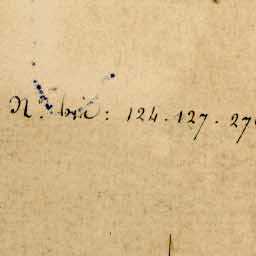 N. bis : 124 . 127 . 27